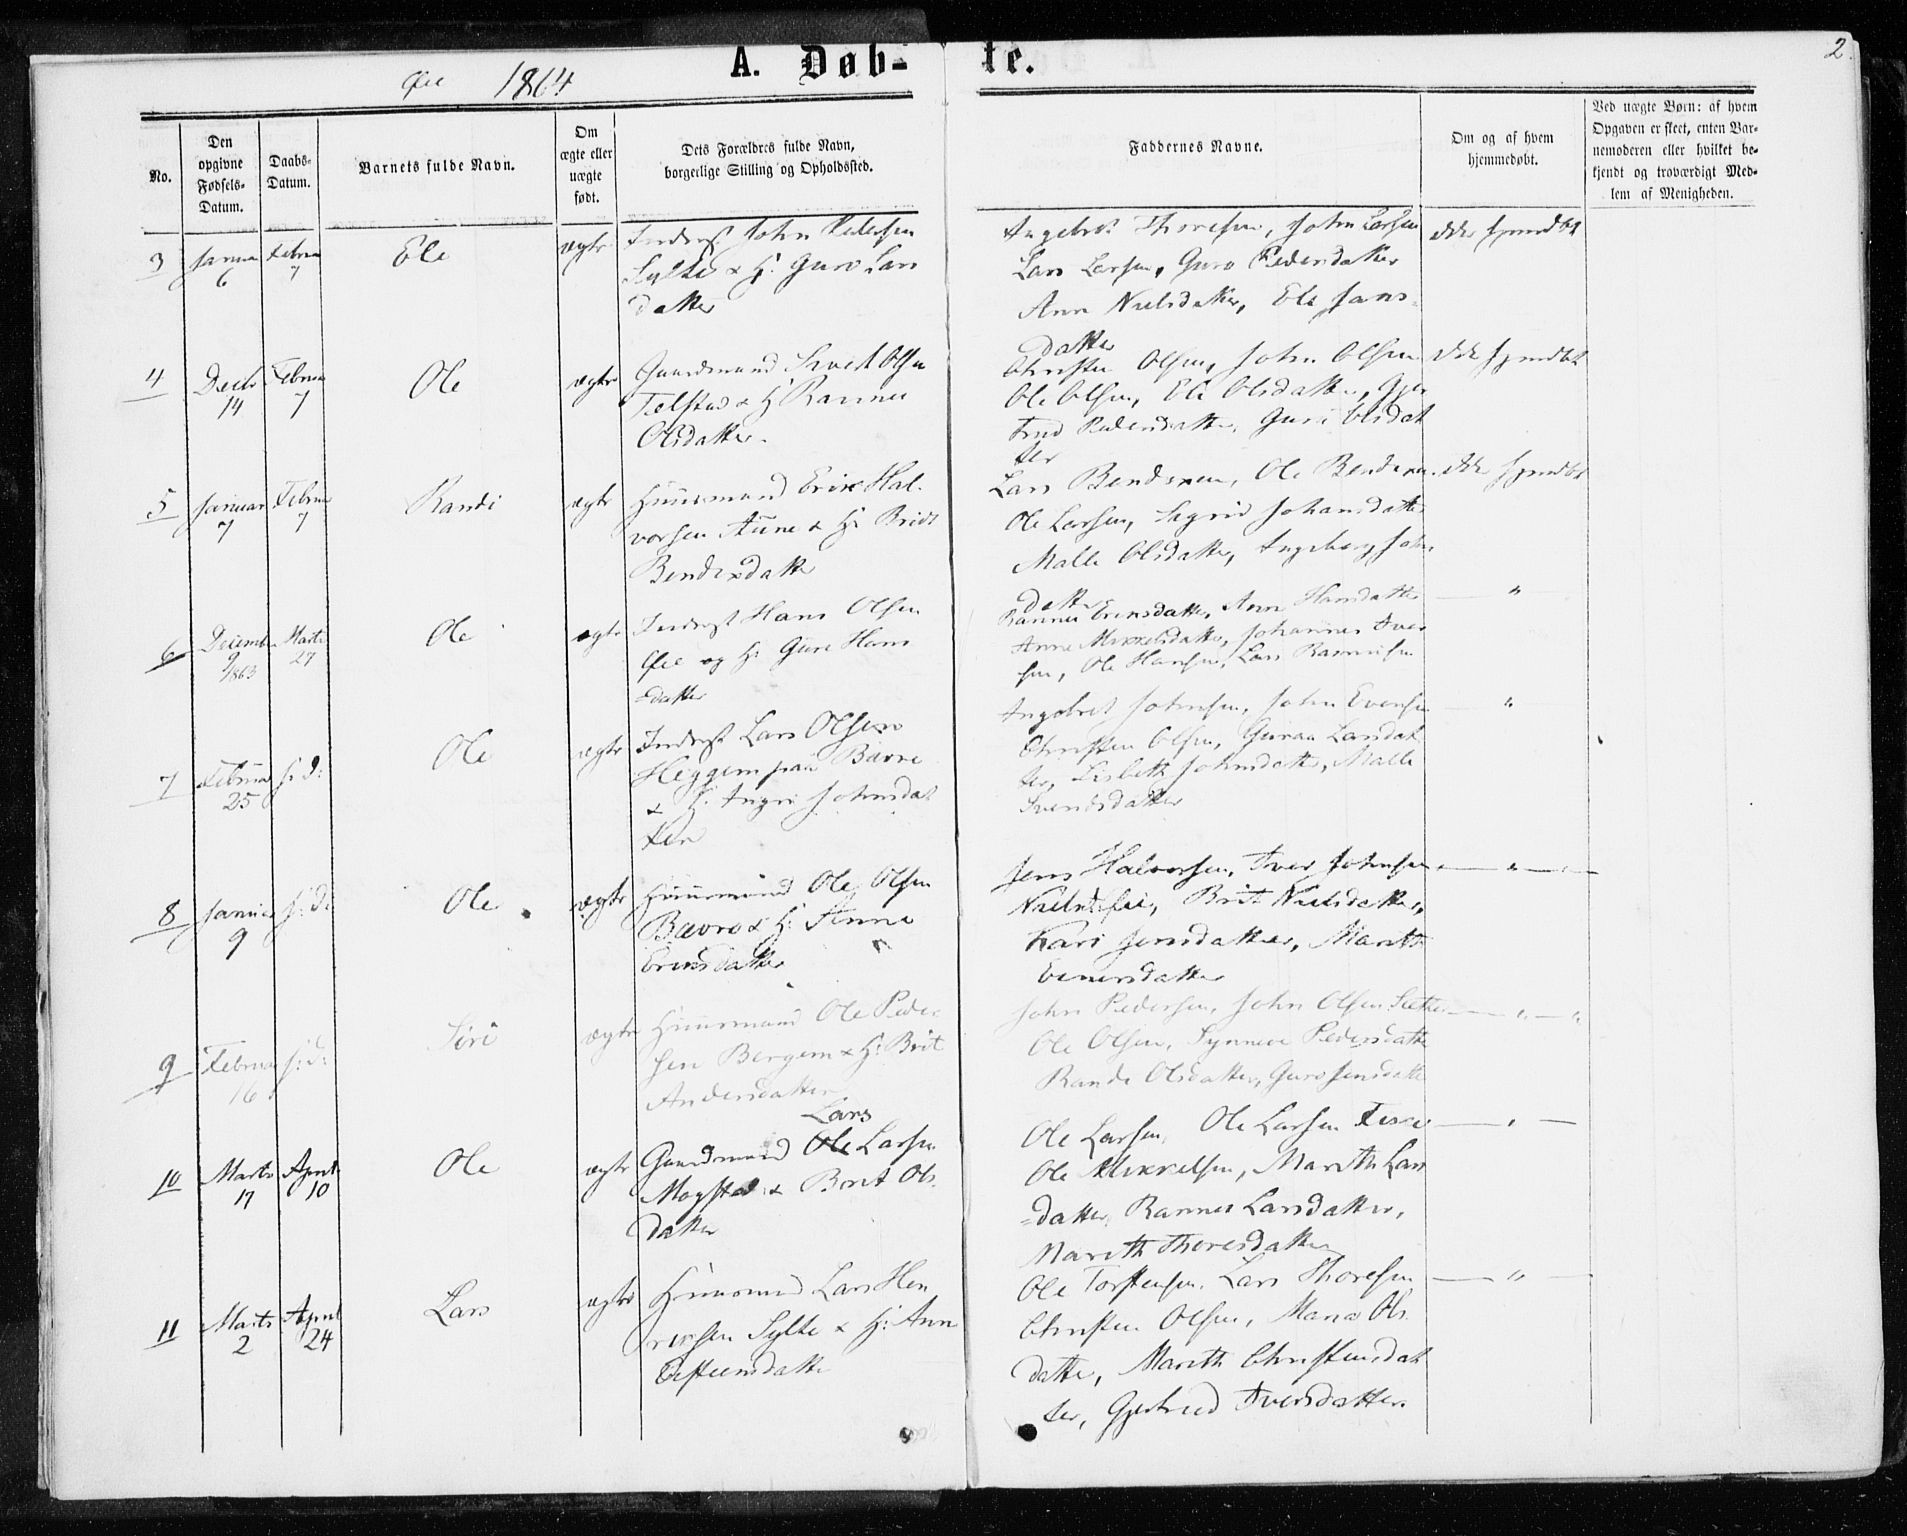 A. Døb-te.
2
Øie 1864
No.
Den
opgivne
Fødsels-
Datum.
Daabs-
Datum.
Barnets fulde Navn.
Om
ægte eller
uægte
født.
Dets Forældres fulde Navn,
borgerlige Stilling og Opholdssted.
Faddernes Navne.
Om og af hvem
hjemmedøbt.
Ved uægte Børn: af hvem
Opgaven er skeet, enten Bar-
nemoderen eller hvilket be-
kjendt og troværdigt Med-
lem af Menigheden.
3
6
7
Ele
ægte
Inderst John Pedersen
Sylte & H: Guro Lars
datter
Ingebrit Thoresen, John Larsen
Lars Larsen, Guro Pedersdatter
Ann Nielsdatter, Ele Jans-
datter
4
Decbr
14
Februar
7
Ole
ægte
Gaardmand Sivert Olsen
Tælstad & H: Rannei
Olsdatter.
Christen Olsen, John Olsen
Ole Olsen, Eli Olsdatter, Gjer
trud Pedersdatter, Guri Olsdat
ter
5
Januar
7
Februar
7
Randi
ægte
Huusmand Erik Hal-
vorsen Aune & H: Brit
Bendixdatter
Lars Bendixen, Ole Bendixen
Ole Larsen, Sigrid Johansdatter
Malli Olsdatter, Ingeborg John
datter
6
Decemb
9
1863
Marts
27
Ole
ægte
Inderst Hans Olsen
Øie og H: Guri Hans
-datter
Rannei Eriksdatter, Ann Hansdatter
Anne Mikkelsdatter, Johannes Iver
sen, Ole Hansen, Lars
"
7
Februar
25
s: d:
Ole
ægte
Inderst Lars Olsen
Heggem paa Bævre
& H: Ingri Johnsdat
ter
Ingebret Johnsen, John Evensen
Christen Olsen, Guraa Larsdat
ter, Lisbeth Johnsdatter, Malli
Svendsdatter
"
8
Januar
9
s: d:
Ole
ægte
Huusmand Ole Olsen
Bævre & H: Anne
Eriksdatter
Jens Halvorsen, Iver Johnsen
Brit Nielsdatter,
Kari Jensdatter, Marith
Einersdatter
"
9
Februar
16
s: d:
Siri
ægte
Huusmand Ole Peder
sen Bergem & H: Brit
Andersdatter
John Pedersen, John Olsen
Ole Olsen, Synneve Pedersdatter
Rande Olsdatter, Guro Jensdatter
"
10
Marts
17
April
10
Ole
ægte
Lars
Gaardmand Ole Larsen
Mogstad & Brit Ols
datter
Ole Larsen, Ole Larsen
Ole Mikkelsen, Marith Lars
-datter, Rannei Larsdatter,
Marith Thoresdatter
"
11
Marts
2
April
24
Lars
ægte
Huusmand Lars Hen
riksen Sylte & H: Ann
Østensdatter
Ole Torstensen, Lars Thoresen
Christen Olsen, Maria Ols
datter, Marith Christensdat
ter, Gjertrud Iversdatter.
"